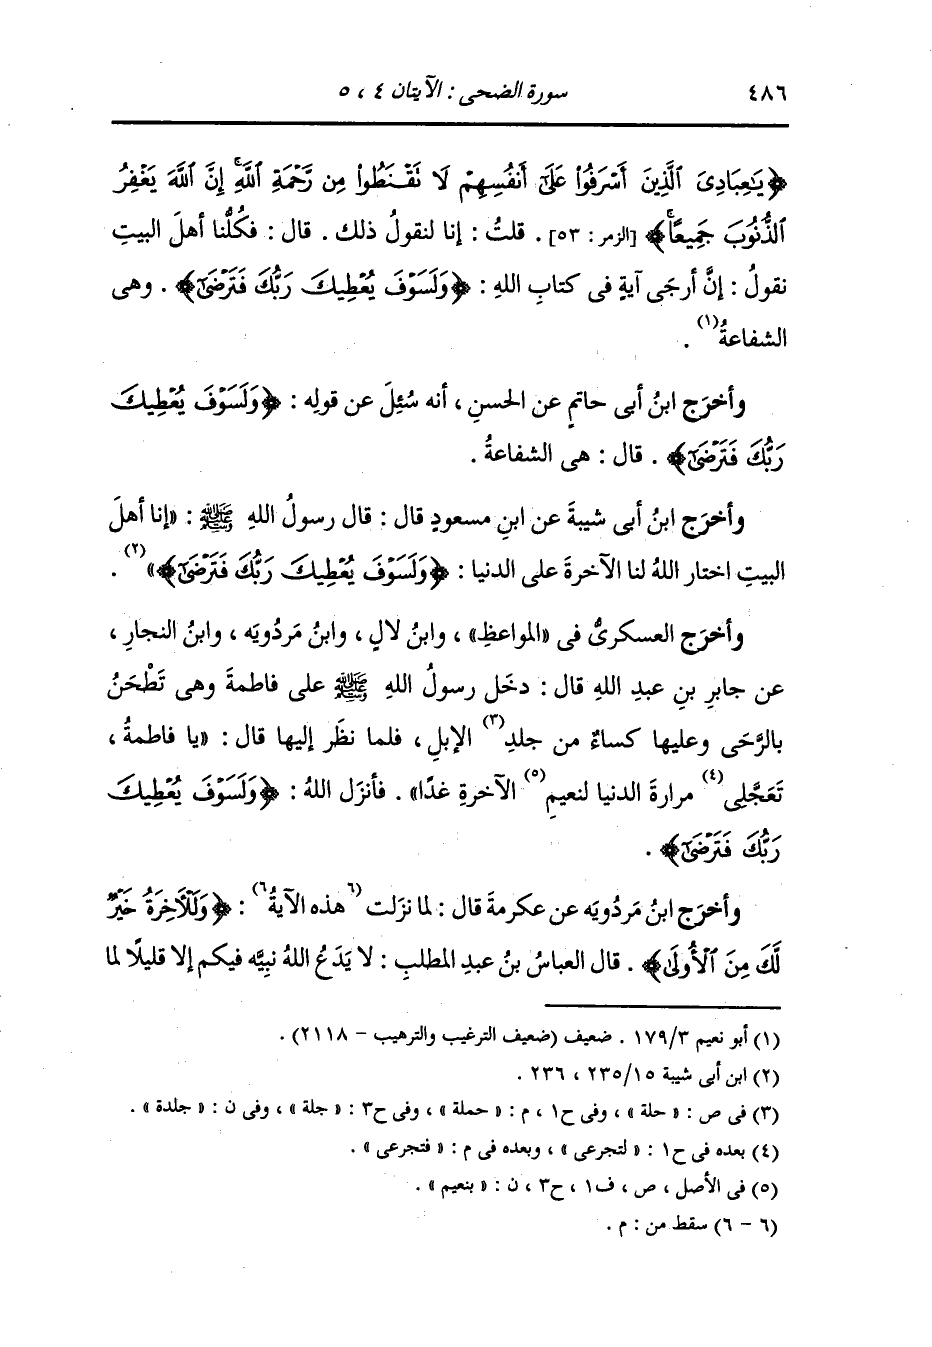 ٤٨٦ سورة الضحى : الآيتان ٤ ، ٥
﴿يَٰعِبَادِىَ ٱلَّذِينَ أَسْرَفُوا۟ عَلَىٰٓ أَنفُسِهِمْ لَا تَقْنَطُوا۟ مِن رَّحْمَةِ ٱللَّهِ ۚ إِنَّ ٱللَّهَ يَغْفِرُ
ٱلذُّنُوبَ جَمِيعًا ۚ﴾ [الزمر : ٥٣] . قلتُ : إنا لنقولُ ذلك . قال : فكُلُّنا أهلَ البيتِ
نقولُ : إنَّ أرجَى آيةٍ فى كتابِ اللهِ : ﴿وَلَسَوْفَ يُعْطِيكَ رَبُّكَ فَتَرْضَىٰٓ﴾ . وهى
الشفاعةُ(١) .
وأخرَج ابنُ أبى حاتمٍ عن الحسنِ ، أنه سُئِلَ عن قولِه : ﴿وَلَسَوْفَ يُعْطِيكَ
رَبُّكَ فَتَرْضَىٰٓ﴾ . قال : هى الشفاعةُ .
وأخرَج ابنُ أبى شيبةَ عن ابنِ مسعودٍ قال : قال رسولُ اللهِ ﷺ : «إنا أهلَ
البيتِ اختار اللهُ لنا الآخرةَ على الدنيا : ﴿وَلَسَوْفَ يُعْطِيكَ رَبُّكَ فَتَرْضَىٰٓ﴾»(٢) .
وأخرَج العسكرىُّ فى «المواعظِ» ، وابنُ لالٍ ، وابنُ مَردُويَه ، وابنُ النجارِ ،
عن جابرِ بنِ عبدِ اللهِ قال : دخَل رسولُ اللهِ ﷺ على فاطمةَ وهى تَطْحَنُ
بالرَّحَى وعليها كساءٌ من جلدِ(٣) الإبلِ ، فلما نظَر إليها قال : «يا فاطمةُ ،
تَعَجَّلِى(٤) مرارةَ الدنيا لنعيمِ(٥) الآخرةِ غدًا» . فأنزَل اللهُ : ﴿وَلَسَوْفَ يُعْطِيكَ
رَبُّكَ فَتَرْضَىٰٓ﴾ .
وأخرَج ابنُ مَردُويَه عن عكرمةَ قال : لما نزَلت (٦هذه الآيةُ٦) : ﴿وَلَلْـَٔاخِرَةُ خَيْرٌ
لَّكَ مِنَ ٱلْأُولَىٰ﴾ . قال العباسُ بنُ عبدِ المطلبِ : لا يَدَعُ اللهُ نبيَّه فيكم إلا قليلًا لما
(١) أبو نعيم ١٧٩/٣ . ضعيف (ضعيف الترغيب والترهيب – ٢١١٨) .
(٢) ابن أبى شيبة ٢٣٥/١٥ ، ٢٣٦ .
(٣) فى ص : « حلة » ، وفى ح١ ، م : « حملة » ، وفى ح٣ : « جلة » ، وفى ن : « جلدة » .
(٤) بعده فى ح١ : « لتجرعى » ، وبعده فى م : « فتجرعى » .
(٥) فى الأصل ، ص ، ف١ ، ح٣ ، ن : « بنعيم » .
(٦ – ٦) سقط من : م .